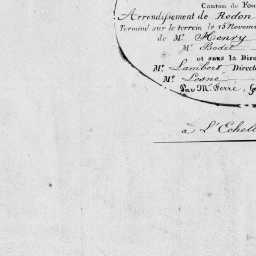 Canton de Fou
Arrondissement de Redon
Terminé sur le terrein le 15 Novem
de Mr. Henry
Mr. Bodet
et sous la Dire
Mr. Lambert Direct
Mr. Lesné
Par Mr. Ferré, G
à l'Echell